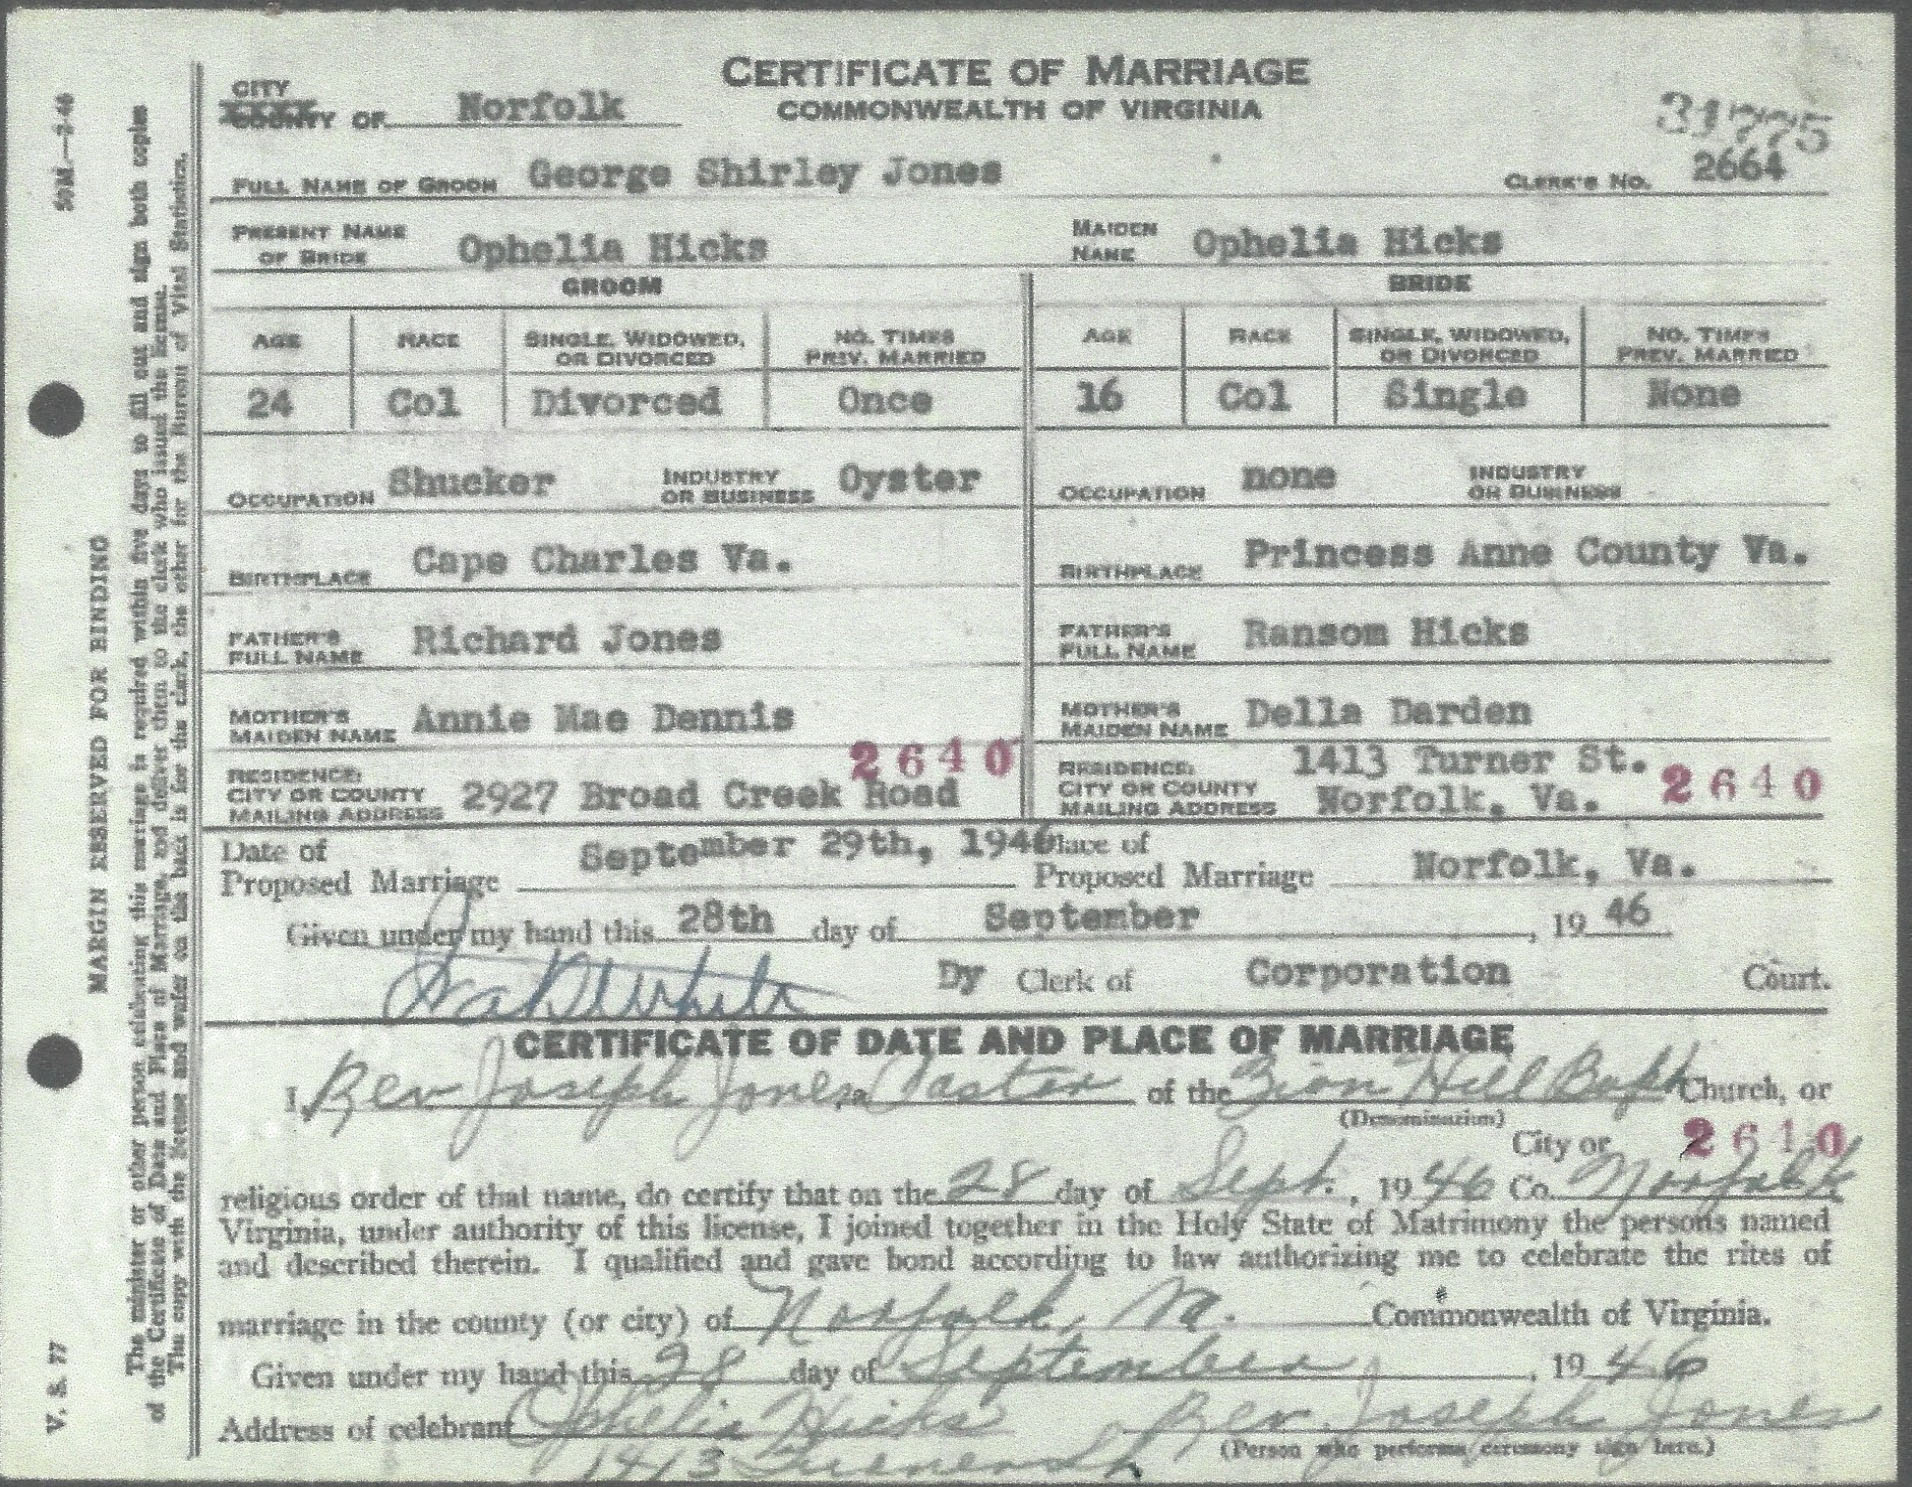 CERTIFICATE OF MARRIAGE
COMMONWEALTH OF VIRGINIA
CITY
COUNTY OF Norfolk
31775
FULL NAME OF GROOM George Shirley Jones CLERK'S NO. 2664
PRESENT NAME OF BRIDE Ophelia Hicks MAIDEN NAME Ophelia Hicks
GROOM BRIDE
AGE RACE SINGLE, WIDOWED, OR DIVORCED NO. TIMES PREV. MARRIED AGE RACE SINGLE, WIDOWED, OR DIVORCED NO. TIMES PREV. MARRIED
24 Col Divorced Once 16 Col Single None
OCCUPATION Shucker INDUSTRY OR BUSINESS Oyster OCCUPATION none INDUSTRY OR BUSINESS
BIRTHPLACE Cape Charles Va. BIRTHPLACE Princess Anne County Va.
FATHER'S FULL NAME Richard Jones FATHER'S FULL NAME Ransom Hicks
MOTHER'S MAIDEN NAME Annie Mae Dennis MOTHER'S MAIDEN NAME Della Darden
2640
RESIDENCE: CITY OR COUNTY MAILING ADDRESS 2927 Broad Creek Road RESIDENCE: CITY OR COUNTY MAILING ADDRESS 1413 Turner St. Norfolk, Va. 2640
Date of Proposed Marriage September 29th, 1946 Place of Proposed Marriage Norfolk, Va.
Given under my hand this 28th day of September, 19 46
Dy Clerk of Corporation Court.
CERTIFICATE OF DATE AND PLACE OF MARRIAGE
I, Rev Joseph Jones, a Pastor of the Zion Hill Bapt Church, or
(Denomination)
City or 2640
religious order of that name, do certify that on the 28 day of Sept., 1946 Co. Norfolk
Virginia, under authority of this license, I joined together in the Holy State of Matrimony the persons named
and described therein. I qualified and gave bond according to law authorizing me to celebrate the rites of
marriage in the county (or city) of Norfolk, Va. Commonwealth of Virginia.
Given under my hand this 28 day of September, 19 46
Address of celebrant Ophelia Hicks Rev. Joseph Jones
(Person who performs ceremony sign here.)
1413
MARGIN RESERVED FOR BINDING
The minister or other person celebrating this marriage is required within five days to fill out and sign both copies
of the Certificate of Date and Place of Marriage, and deliver them to the clerk who issued the license.
The copy with the license and wafer on the back is for the clerk, the other for the Bureau of Vital Statistics.
V. S. 77
50M.—2-46